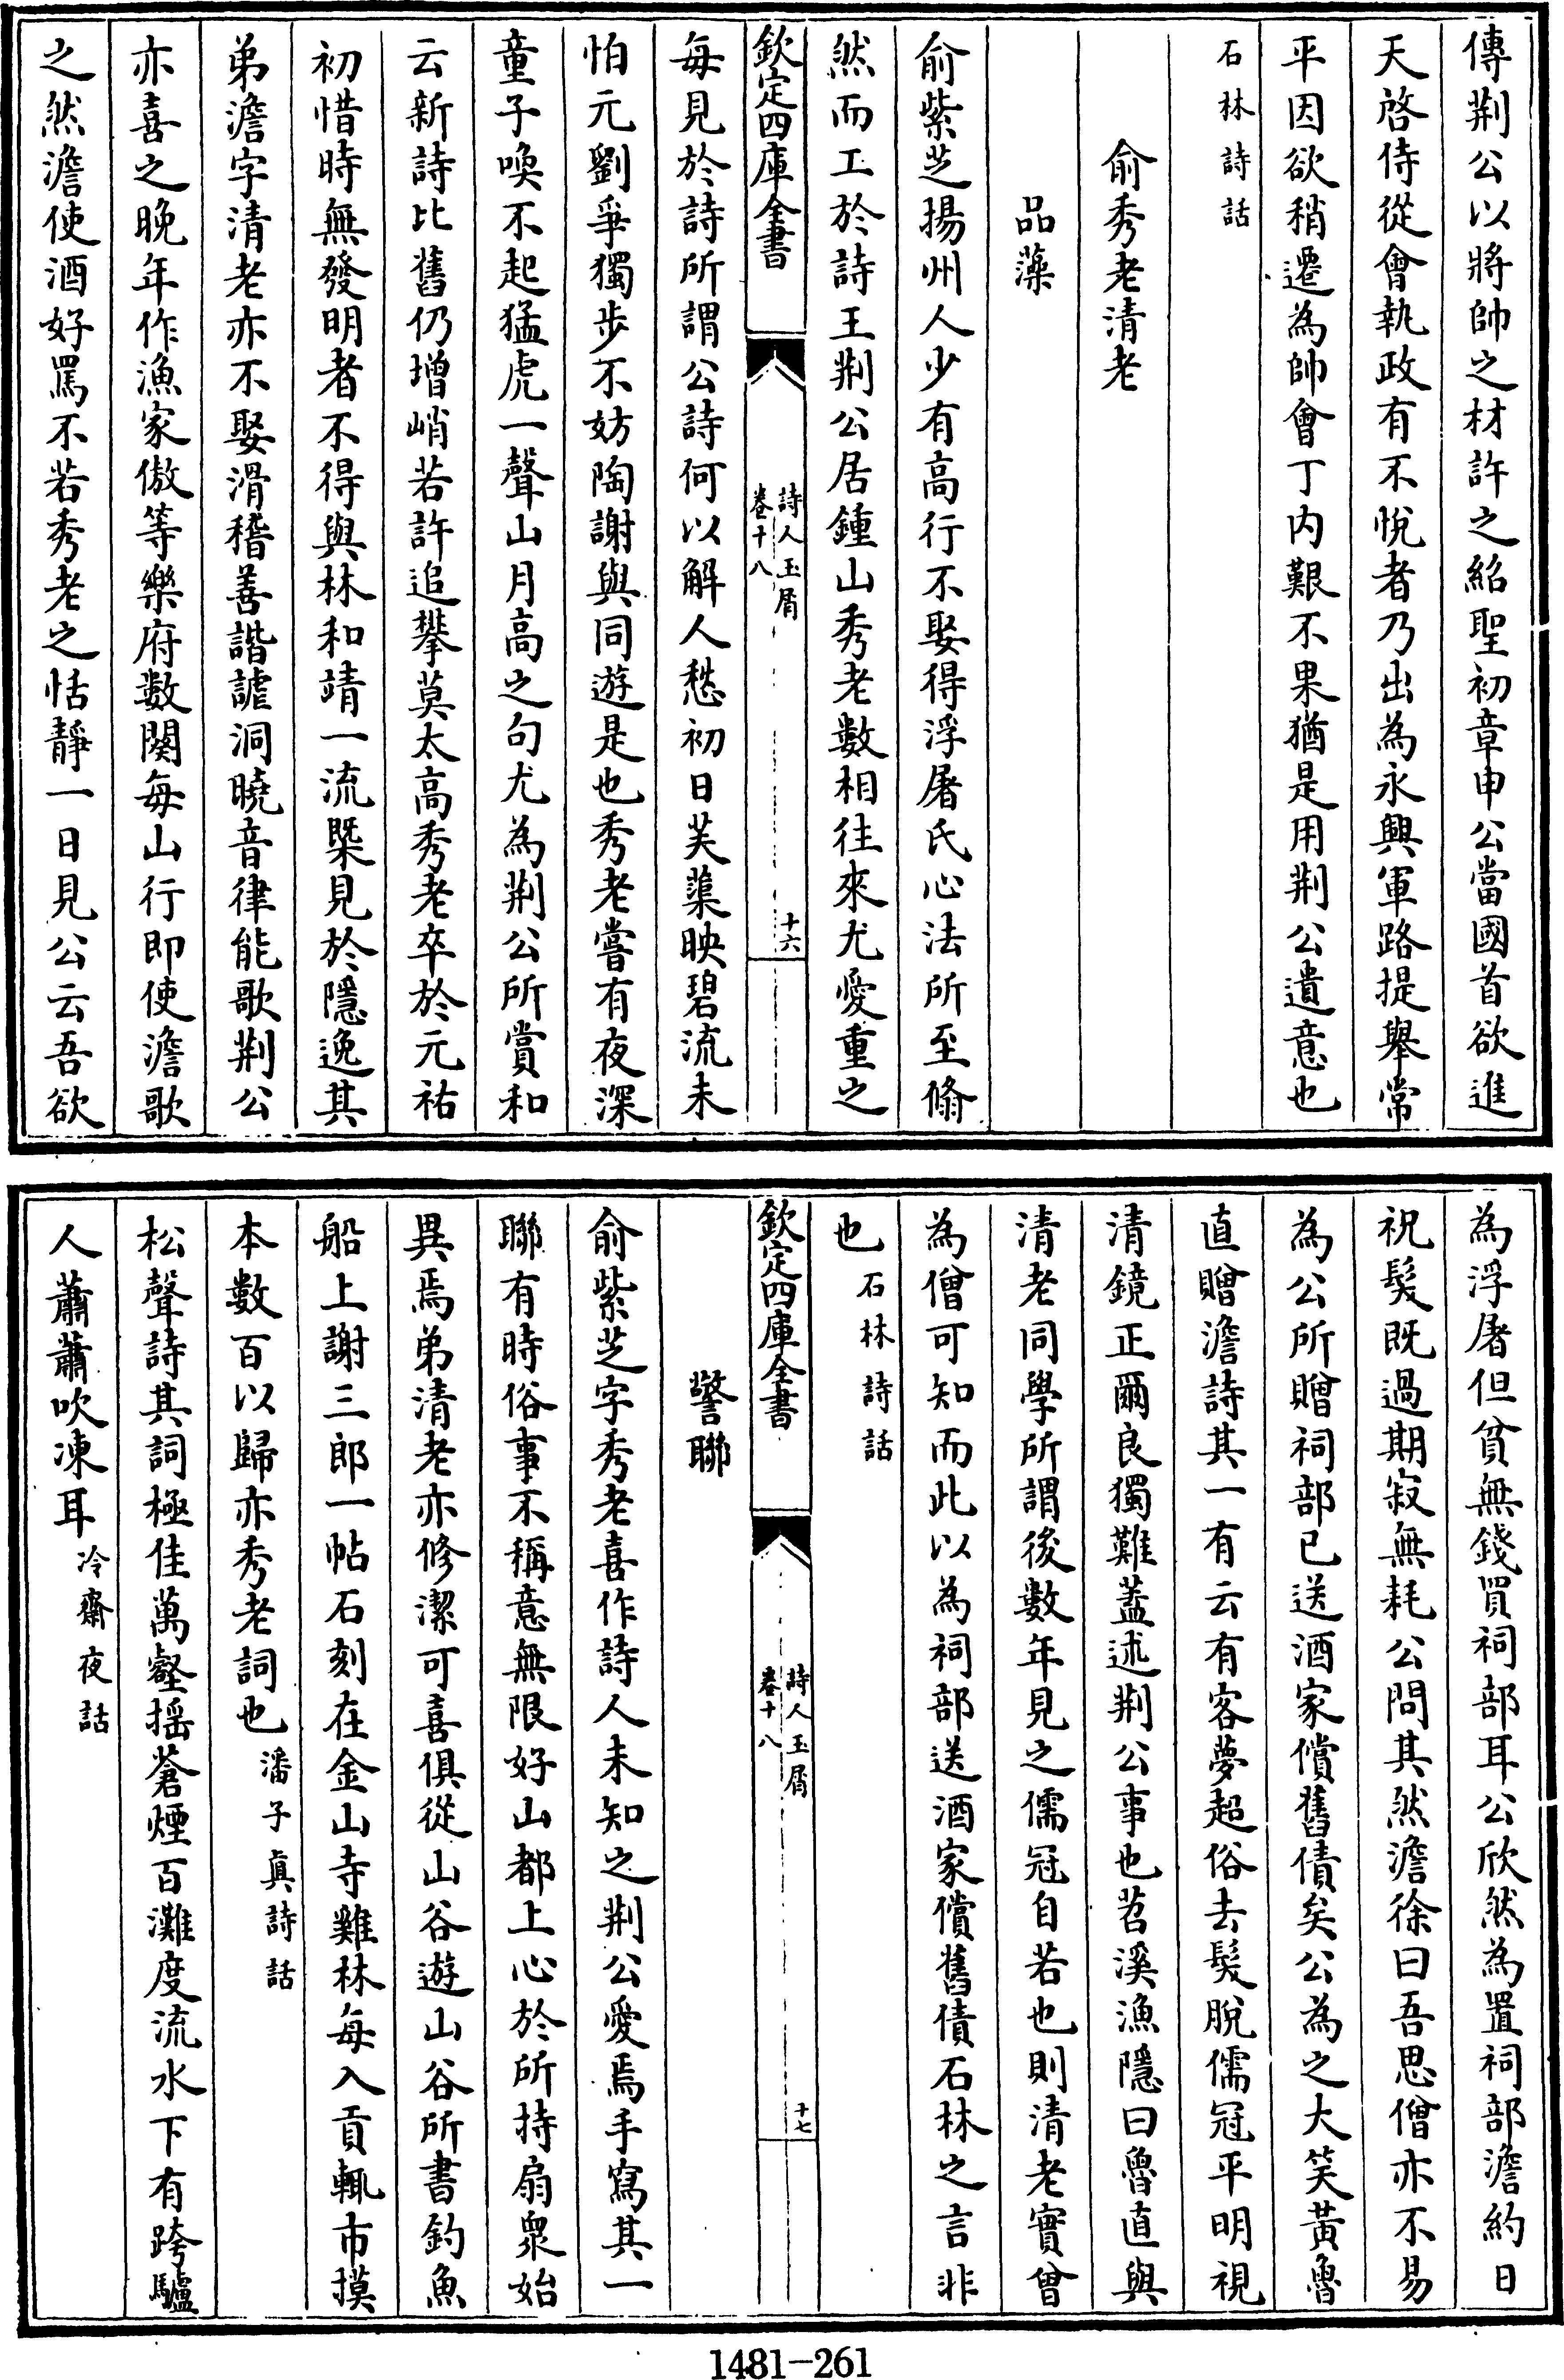 傳荆公以將帥之材許之紹聖初章申公當國首欲進
天啓侍從會執政有不悅者乃出為永興軍路提舉常
平因欲稍遷為帥會丁内艱不果猶是用荆公遺意也
石林詩話
俞秀老清老
品藻
俞紫芝揚州人少有高行不娶得浮屠氏心法所至翛
然而工於詩王荆公居鍾山秀老數相往來尤愛重之
欽定四庫全書
詩人玉屑
卷十八
十六
每見於詩所謂公詩何以解人愁初日芙蕖映碧流未
怕元劉爭獨步不妨陶謝與同遊是也秀老嘗有夜深
童子喚不起猛虎一聲山月高之句尤為荆公所賞和
云新詩比舊仍增峭若許追攀莫太高秀老卒於元祐
初惜時無發明者不得與林和靖一流槩見於隱逸其
弟澹字清老亦不娶滑稽善諧謔洞曉音律能歌荆公
亦喜之晚年作漁家傲等樂府數闋每山行即使澹歌
之然澹使酒好罵不若秀老之恬靜一日見公云吾欲
為浮屠但貧無錢買祠部耳公欣然為置祠部澹約日
祝髮既過期寂無耗公問其然澹徐曰吾思僧亦不易
為公所贈祠部已送酒家償舊債矣公為之大笑黃魯
直贈澹詩其一有云有客夢超俗去髮脫儒冠平明視
清鏡正爾良獨難蓋述荆公事也苕溪漁隱曰魯直與
清老同學所謂後數年見之儒冠自若也則清老實曾
為僧可知而此以為祠部送酒家償舊債石林之言非
也石林詩話
欽定四庫全書
詩人玉屑
卷十八
十七
警聯
俞紫芝字秀老喜作詩人未知之荆公愛焉手寫其一
聯有時俗事不稱意無限好山都上心於所持扇衆始
異焉弟清老亦修潔可喜俱從山谷遊山谷所書釣魚
船上謝三郎一帖石刻在金山寺雞林每入貢輒市摸
本數百以歸亦秀老詞也潘子真詩話
松聲詩其詞極佳萬壑摇蒼煙百灘度流水下有跨驢
人蕭蕭吹凍耳冷齋夜話
1481-261